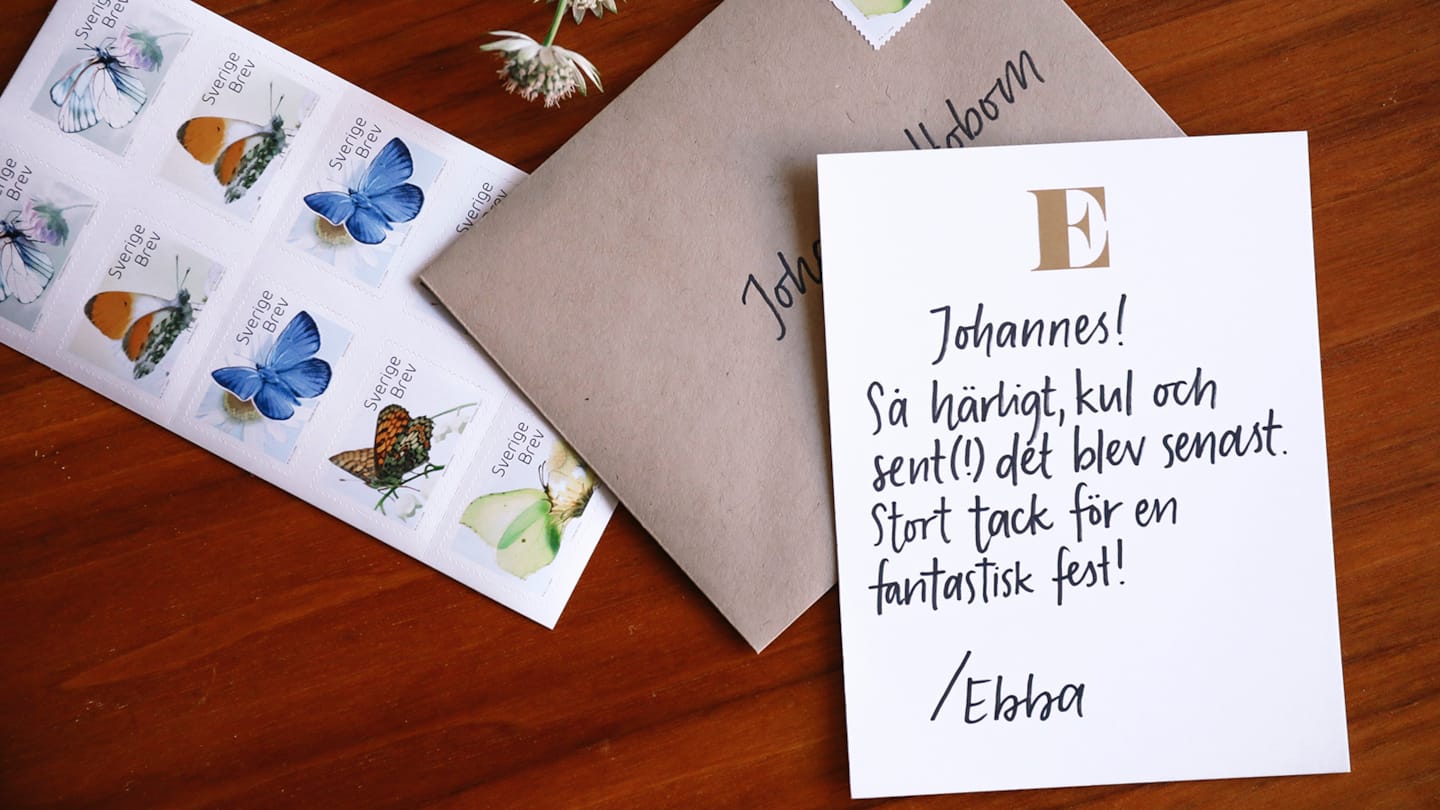 Sverige
Brev
Sverige
Brev
Sverige
Brev
Sverige
Sverige
Brev
Sverige
Brev
Sverige
Brev
Sverige
Brev
Sverige
Brev
E
Johannes!
Så härligt, kul och
sent(!) det blev senast.
Stort tack för en
fantastisk fest!
/Ebba